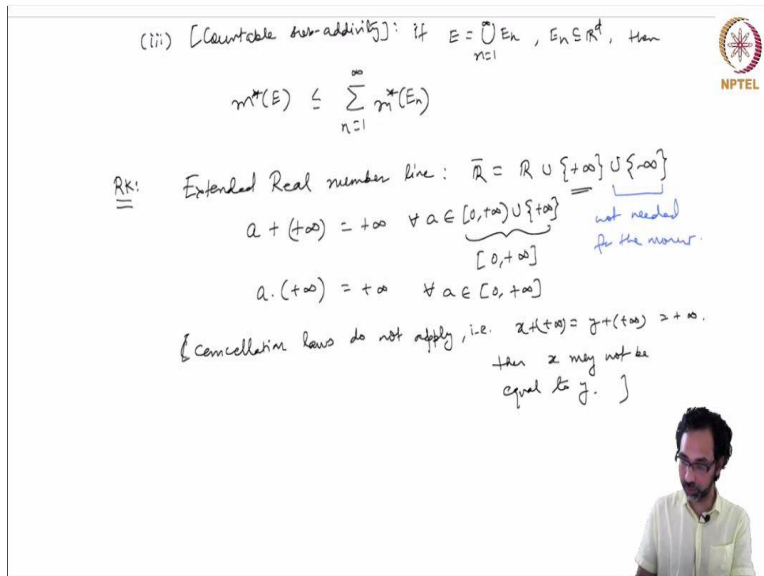 (iii) [Countable sub-addivity]: if E = ∞⋃n=1 En , En ⊆ ℝᵈ, then
m*(E) ≤ ∞∑n=1 m*(En)
RK: Extended Real number line: ℝ̄ = ℝ ∪ {+∞} ∪ {-∞}
not needed for the moment.
a + (+∞) = +∞ ∀ a ∈ [0,+∞) ∪ {+∞}
[0,+∞]
a.(+∞) = +∞ ∀ a ∈ [0,+∞]
[Cancellation laws do not apply, i.e. x+(+∞) = y+(+∞) = +∞.
then x may not be
equal to y. ]
NPTEL